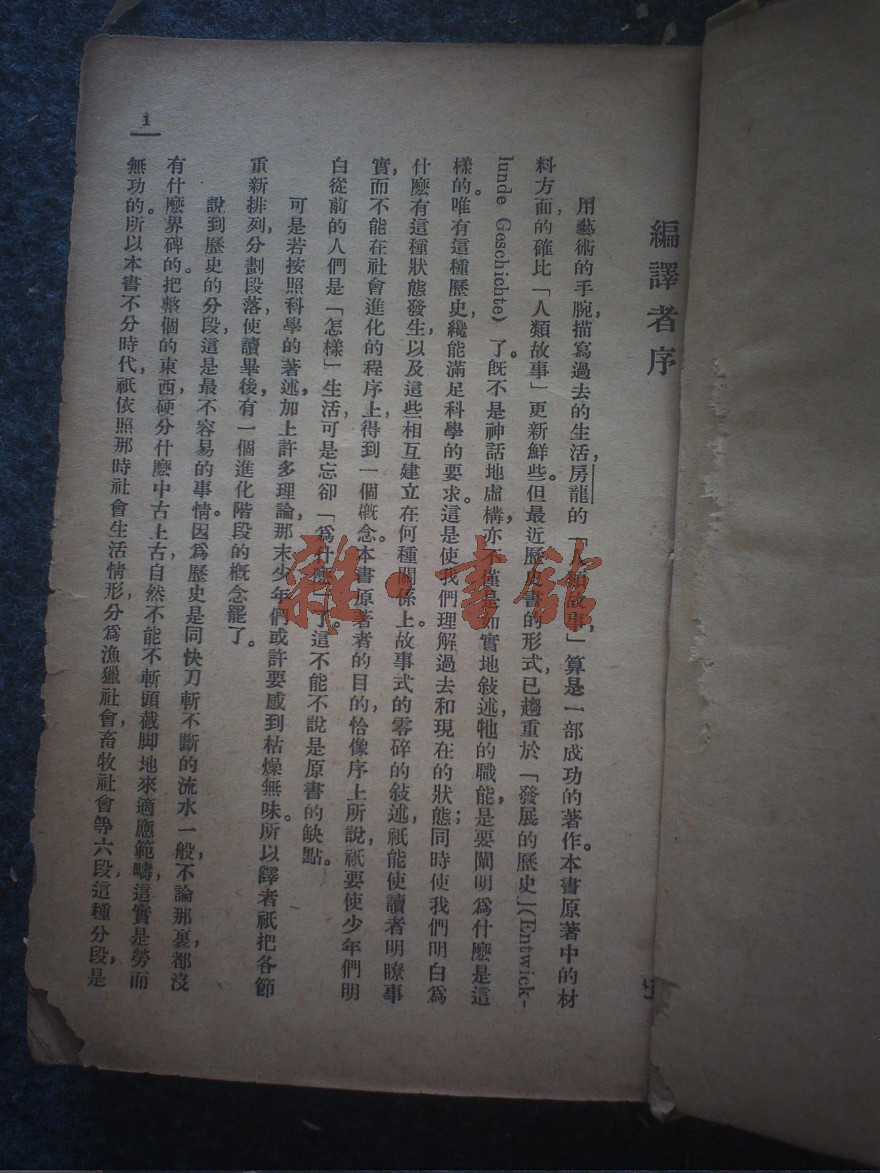 編譯者序
用藝術的手腕，描寫過去的生活，房龍的「人類故事」，算是一部成功的著作。本書原著中的材
料方面，的確比「人類故事」更新鮮些。但最近歷史書的形式，已趨重於「發展的歷史」(Entwick-
lunde Geschichte) 了。旣不是神話地虛構，亦不僅是如實地敍述，牠的職能，是要闡明爲什麽是這
樣的。唯有這種歷史，纔能滿足科學的要求。這是使我們理解過去和現在的狀態；同時使我們明白爲
什麽有這種狀態發生，以及這些相互建立在何種關係上。故事式的零碎的敍述，祇能使讀者明瞭事
實，而不能在社會進化的程序上，得到一個槪念。本書原著者的目的，恰像序上所說，祇要使少年們明
白從前的人們是「怎樣」生活，可是忘卻「爲什麽」了。這不能不說是原書的缺點。
可是若按照科學的著述，加上許多理論，那末少年們或許要感到枯燥無味。所以譯者祇把各節
重新排列，分劃段落，使讀畢後，有一個進化階段的槪念罷了。
說到歷史的分段，這是最不容易的事情。因爲歷史是同快刀斬不斷的流水一般，不論那裏，都沒
有什麽界碑的。把整個的東西，硬分什麽中古上古，自然不能不斬頭截脚地來適應範疇，這實是勞而
無功的。所以本書不分時代，祇依照那時社會生活情形，分爲漁獵社會，畜牧社會等六段，這種分段，是
1
雜·書館